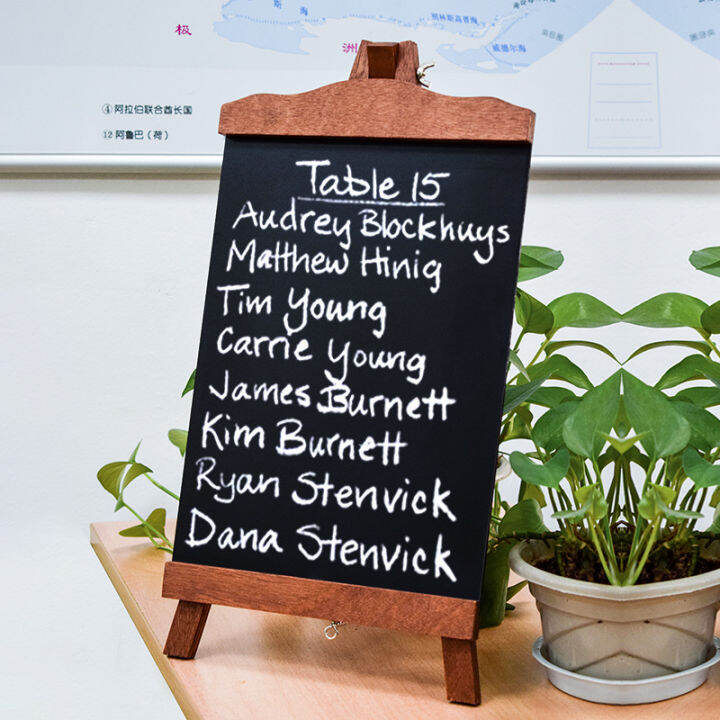 极
洲
斯
海
别林斯高晋海
威德尔海
④ 阿拉伯联合酋长国
12 阿鲁巴（荷）
Table 15
Audrey Blockhuys
Matthew Hinig
Tim Young
Carrie Young
James Burnett
Kim Burnett
Ryan Stenvick
Dana Stenvick